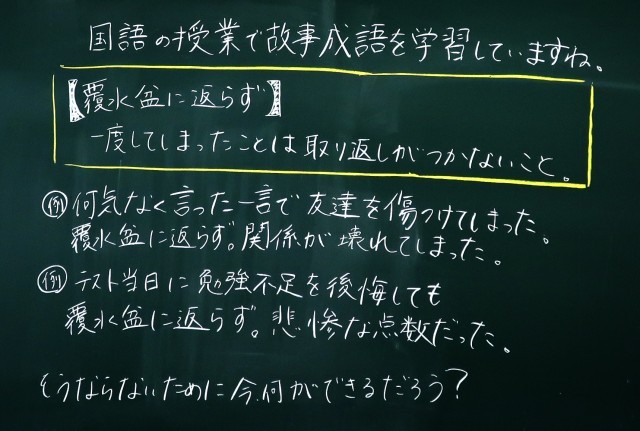 国語の授業で故事成語を学習していますね。
【覆水盆に返らず】
一度してしまったことは取り返しがつかないこと。
例 何気なく言った一言で友達を傷つけてしまった。
覆水盆に返らず。関係が壊れてしまった。
例 テスト当日に勉強不足を後悔しても
覆水盆に返らず。悲惨な点数だった。
そうならないために今、何ができるだろう?